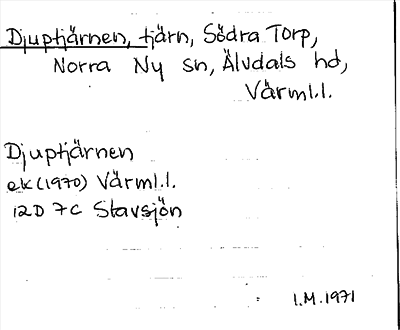 Djuptjärnen, tjärn, Södra Torp,
Norra Ny sn, Älvdals hd,
Värml.l.
Djuptjärnen
ek (1970) Värml.l.
12D 7C Stavsjön
I.M. 1971